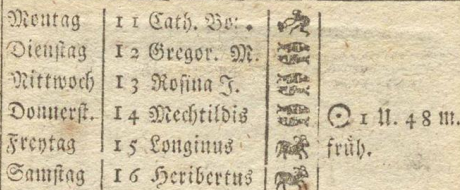 Montag 11 Cath. Bo: .
Dienstag 12 Gregor. M.
Mittwoch 13 Rosina J.
Donnerst. 14 Mechtildis ☉ 1 U. 48 m.
Freytag 15 Longinus früh.
Samstag 16 Heribertus